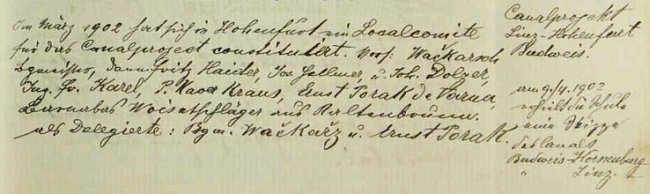 Im März 1902 hat sich in Hohenfurt ein Localcomite
für das Canalproject constituiert. Vors. Wačkarsch
Bgmeister, dann Fritz Haider, Jos. Gellner, u. Joh. Dolzer,
Ing. Fr. Karel, P. Xaver Kraus, Ernst Porak de Varna,
Barnabas Woisetschläger aus Kaltenbrunn.
als Delegierte: Bgm. Wačkarž u. Ernst Porak.
Canalprojekt
Linz-Hohenfurt
Budweis.
am 9./4. 1902
erhielt die Schule
eine Skizze
des Canals
Budweis-Korneuburg
" Linz.